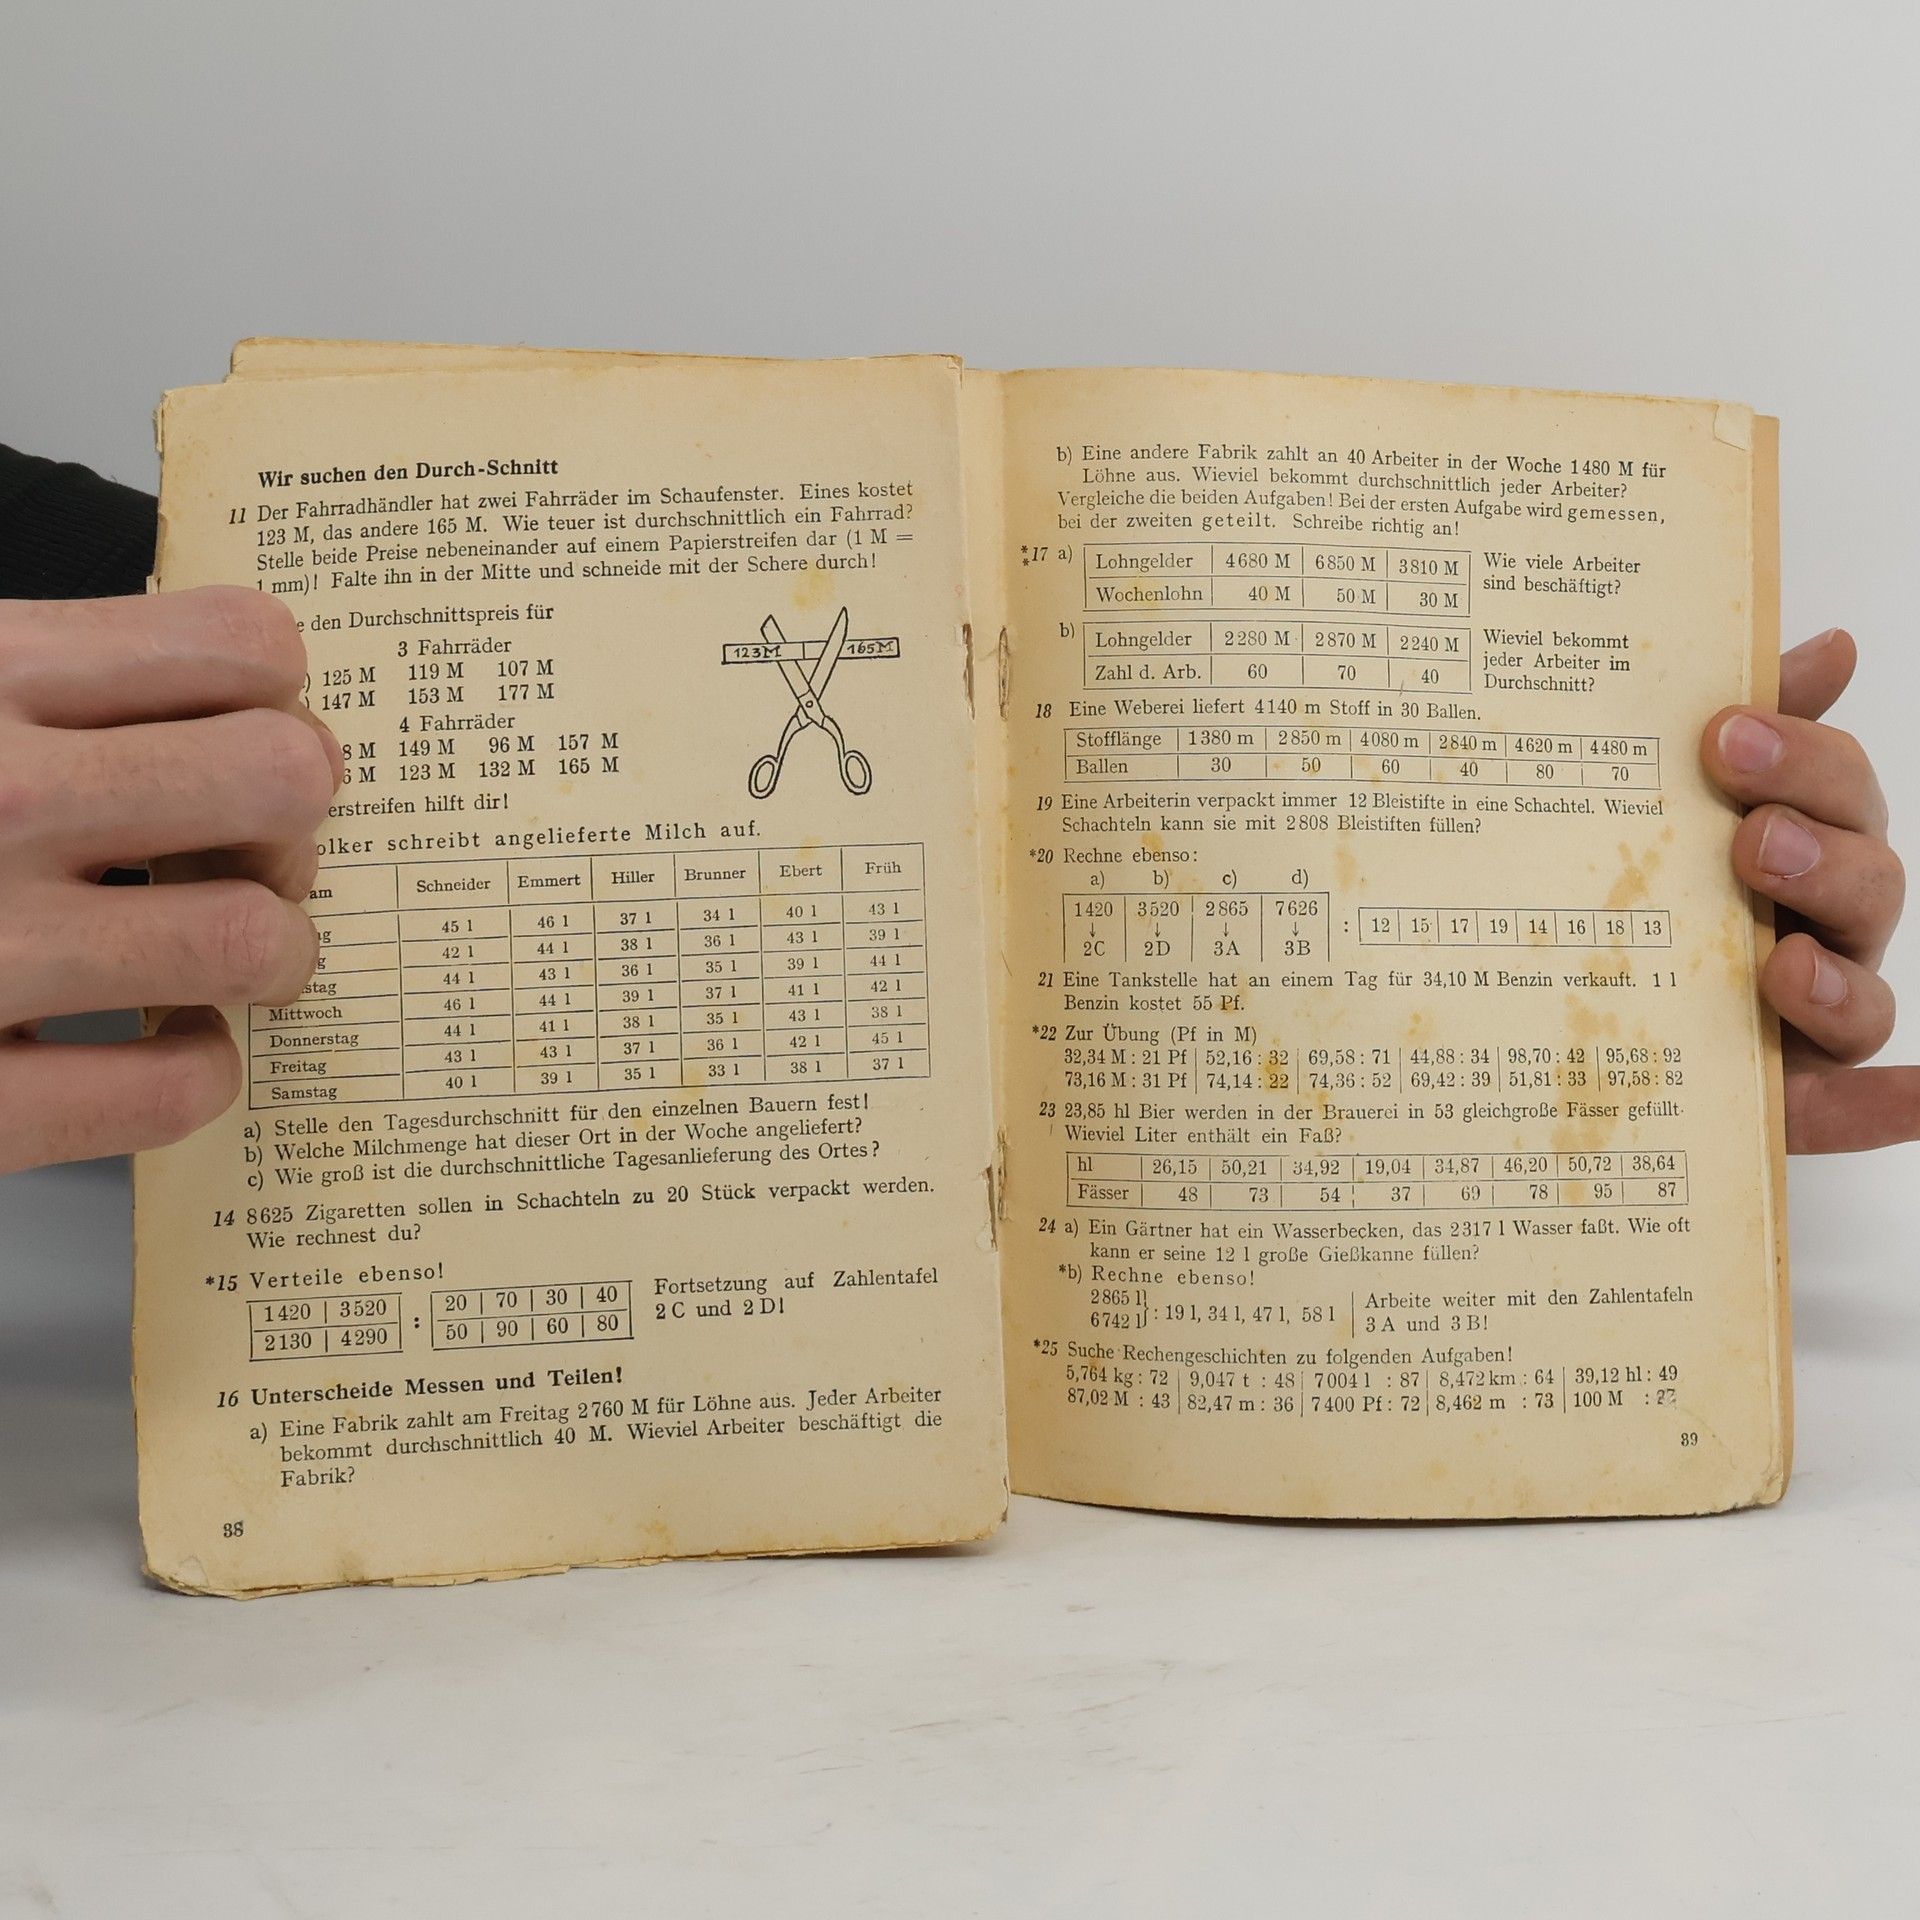 Wir suchen den Durch-Schnitt
11 Der Fahrradhändler hat zwei Fahrräder im Schaufenster. Eines kostet
123 M, das andere 165 M. Wie teuer ist durchschnittlich ein Fahrrad?
Stelle beide Preise nebeneinander auf einem Papierstreifen dar (1 M =
1 mm)! Falte ihn in der Mitte und schneide mit der Schere durch!
den Durchschnittspreis für
3 Fahrräder
125 M 119 M 107 M
147 M 153 M 177 M
4 Fahrräder
8 M 149 M 96 M 157 M
6 M 123 M 132 M 165 M
erstreifen hilft dir!
123M 165M
olker schreibt angelieferte Milch auf.
am Schneider Emmert Hiller Brunner Ebert Früh
g 45 l 46 l 37 l 34 l 40 l 43 l
g 42 l 44 l 38 l 36 l 43 l 39 l
stag 44 l 43 l 36 l 35 l 39 l 44 l
Mittwoch 46 l 44 l 39 l 37 l 41 l 42 l
Donnerstag 44 l 41 l 38 l 35 l 43 l 38 l
Freitag 43 l 43 l 37 l 36 l 42 l 45 l
Samstag 40 l 39 l 35 l 33 l 38 l 37 l
a) Stelle den Tagesdurchschnitt für den einzelnen Bauern fest!
b) Welche Milchmenge hat dieser Ort in der Woche angeliefert?
c) Wie groß ist die durchschnittliche Tagesanlieferung des Ortes?
14 8625 Zigaretten sollen in Schachteln zu 20 Stück verpackt werden.
Wie rechnest du?
*15 Verteile ebenso!
1420 | 3520 : 20 | 70 | 30 | 40 Fortsetzung auf Zahlentafel
2130 | 4290 50 | 90 | 60 | 80 2 C und 2 D!
16 Unterscheide Messen und Teilen!
a) Eine Fabrik zahlt am Freitag 2760 M für Löhne aus. Jeder Arbeiter
bekommt durchschnittlich 40 M. Wieviel Arbeiter beschäftigt die
Fabrik?
38
b) Eine andere Fabrik zahlt an 40 Arbeiter in der Woche 1480 M für
Löhne aus. Wieviel bekommt durchschnittlich jeder Arbeiter?
Vergleiche die beiden Aufgaben! Bei der ersten Aufgabe wird gemessen,
bei der zweiten geteilt. Schreibe richtig an!
**17 a) Lohngelder | 4680 M | 6850 M | 3810 M Wie viele Arbeiter
Wochenlohn | 40 M | 50 M | 30 M sind beschäftigt?
b) Lohngelder | 2280 M | 2870 M | 2240 M Wieviel bekommt
jeder Arbeiter im
Zahl d. Arb. | 60 | 70 | 40 Durchschnitt?
18 Eine Weberei liefert 4140 m Stoff in 30 Ballen.
Stofflänge | 1380 m | 2850 m | 4080 m | 2840 m | 4620 m | 4480 m
Ballen | 30 | 50 | 60 | 40 | 80 | 70
19 Eine Arbeiterin verpackt immer 12 Bleistifte in eine Schachtel. Wieviel
Schachteln kann sie mit 2808 Bleistiften füllen?
*20 Rechne ebenso:
a) b) c) d)
1420 | 3520 | 2865 | 7626
↓ ↓ ↓ ↓ : 12 | 15 | 17 | 19 | 14 | 16 | 18 | 13
2C | 2D | 3A | 3B
21 Eine Tankstelle hat an einem Tag für 34,10 M Benzin verkauft. 1 l
Benzin kostet 55 Pf.
*22 Zur Übung (Pf in M)
32,34 M : 21 Pf | 52,16 : 32 | 69,58 : 71 | 44,88 : 34 | 98,70 : 42 | 95,68 : 92
73,16 M : 31 Pf | 74,14 : 22 | 74,36 : 52 | 69,42 : 39 | 51,81 : 33 | 97,58 : 82
23 23,85 hl Bier werden in der Brauerei in 53 gleichgroße Fässer gefüllt.
Wieviel Liter enthält ein Faß?
hl | 26,15 | 50,21 | 34,92 | 19,04 | 34,87 | 46,20 | 50,72 | 38,64
Fässer | 48 | 73 | 54 | 37 | 69 | 78 | 95 | 87
24 a) Ein Gärtner hat ein Wasserbecken, das 2317 l Wasser faßt. Wie oft
kann er seine 12 l große Gießkanne füllen?
*b) Rechne ebenso!
2865 l} : 19 l, 34 l, 47 l, 58 l | Arbeite weiter mit den Zahlentafeln
6742 l} 3 A und 3 B!
*25 Suche Rechengeschichten zu folgenden Aufgaben!
5,764 kg : 72 | 9,047 t : 48 | 7004 l : 87 | 8,472 km : 64 | 39,12 hl : 49
87,02 M : 43 | 82,47 m : 36 | 7400 Pf : 72 | 8,462 m : 73 | 100 M :
39